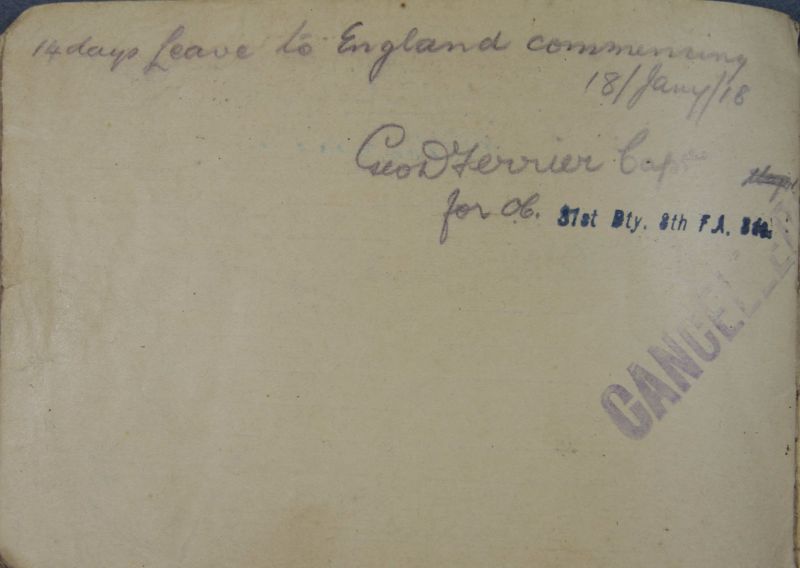 14 days Leave to England commencing
18/Jany/18
Geo D Ferrier Capt
for OC. 31st Bty. 8th F.A. Bde.
CANCELLED